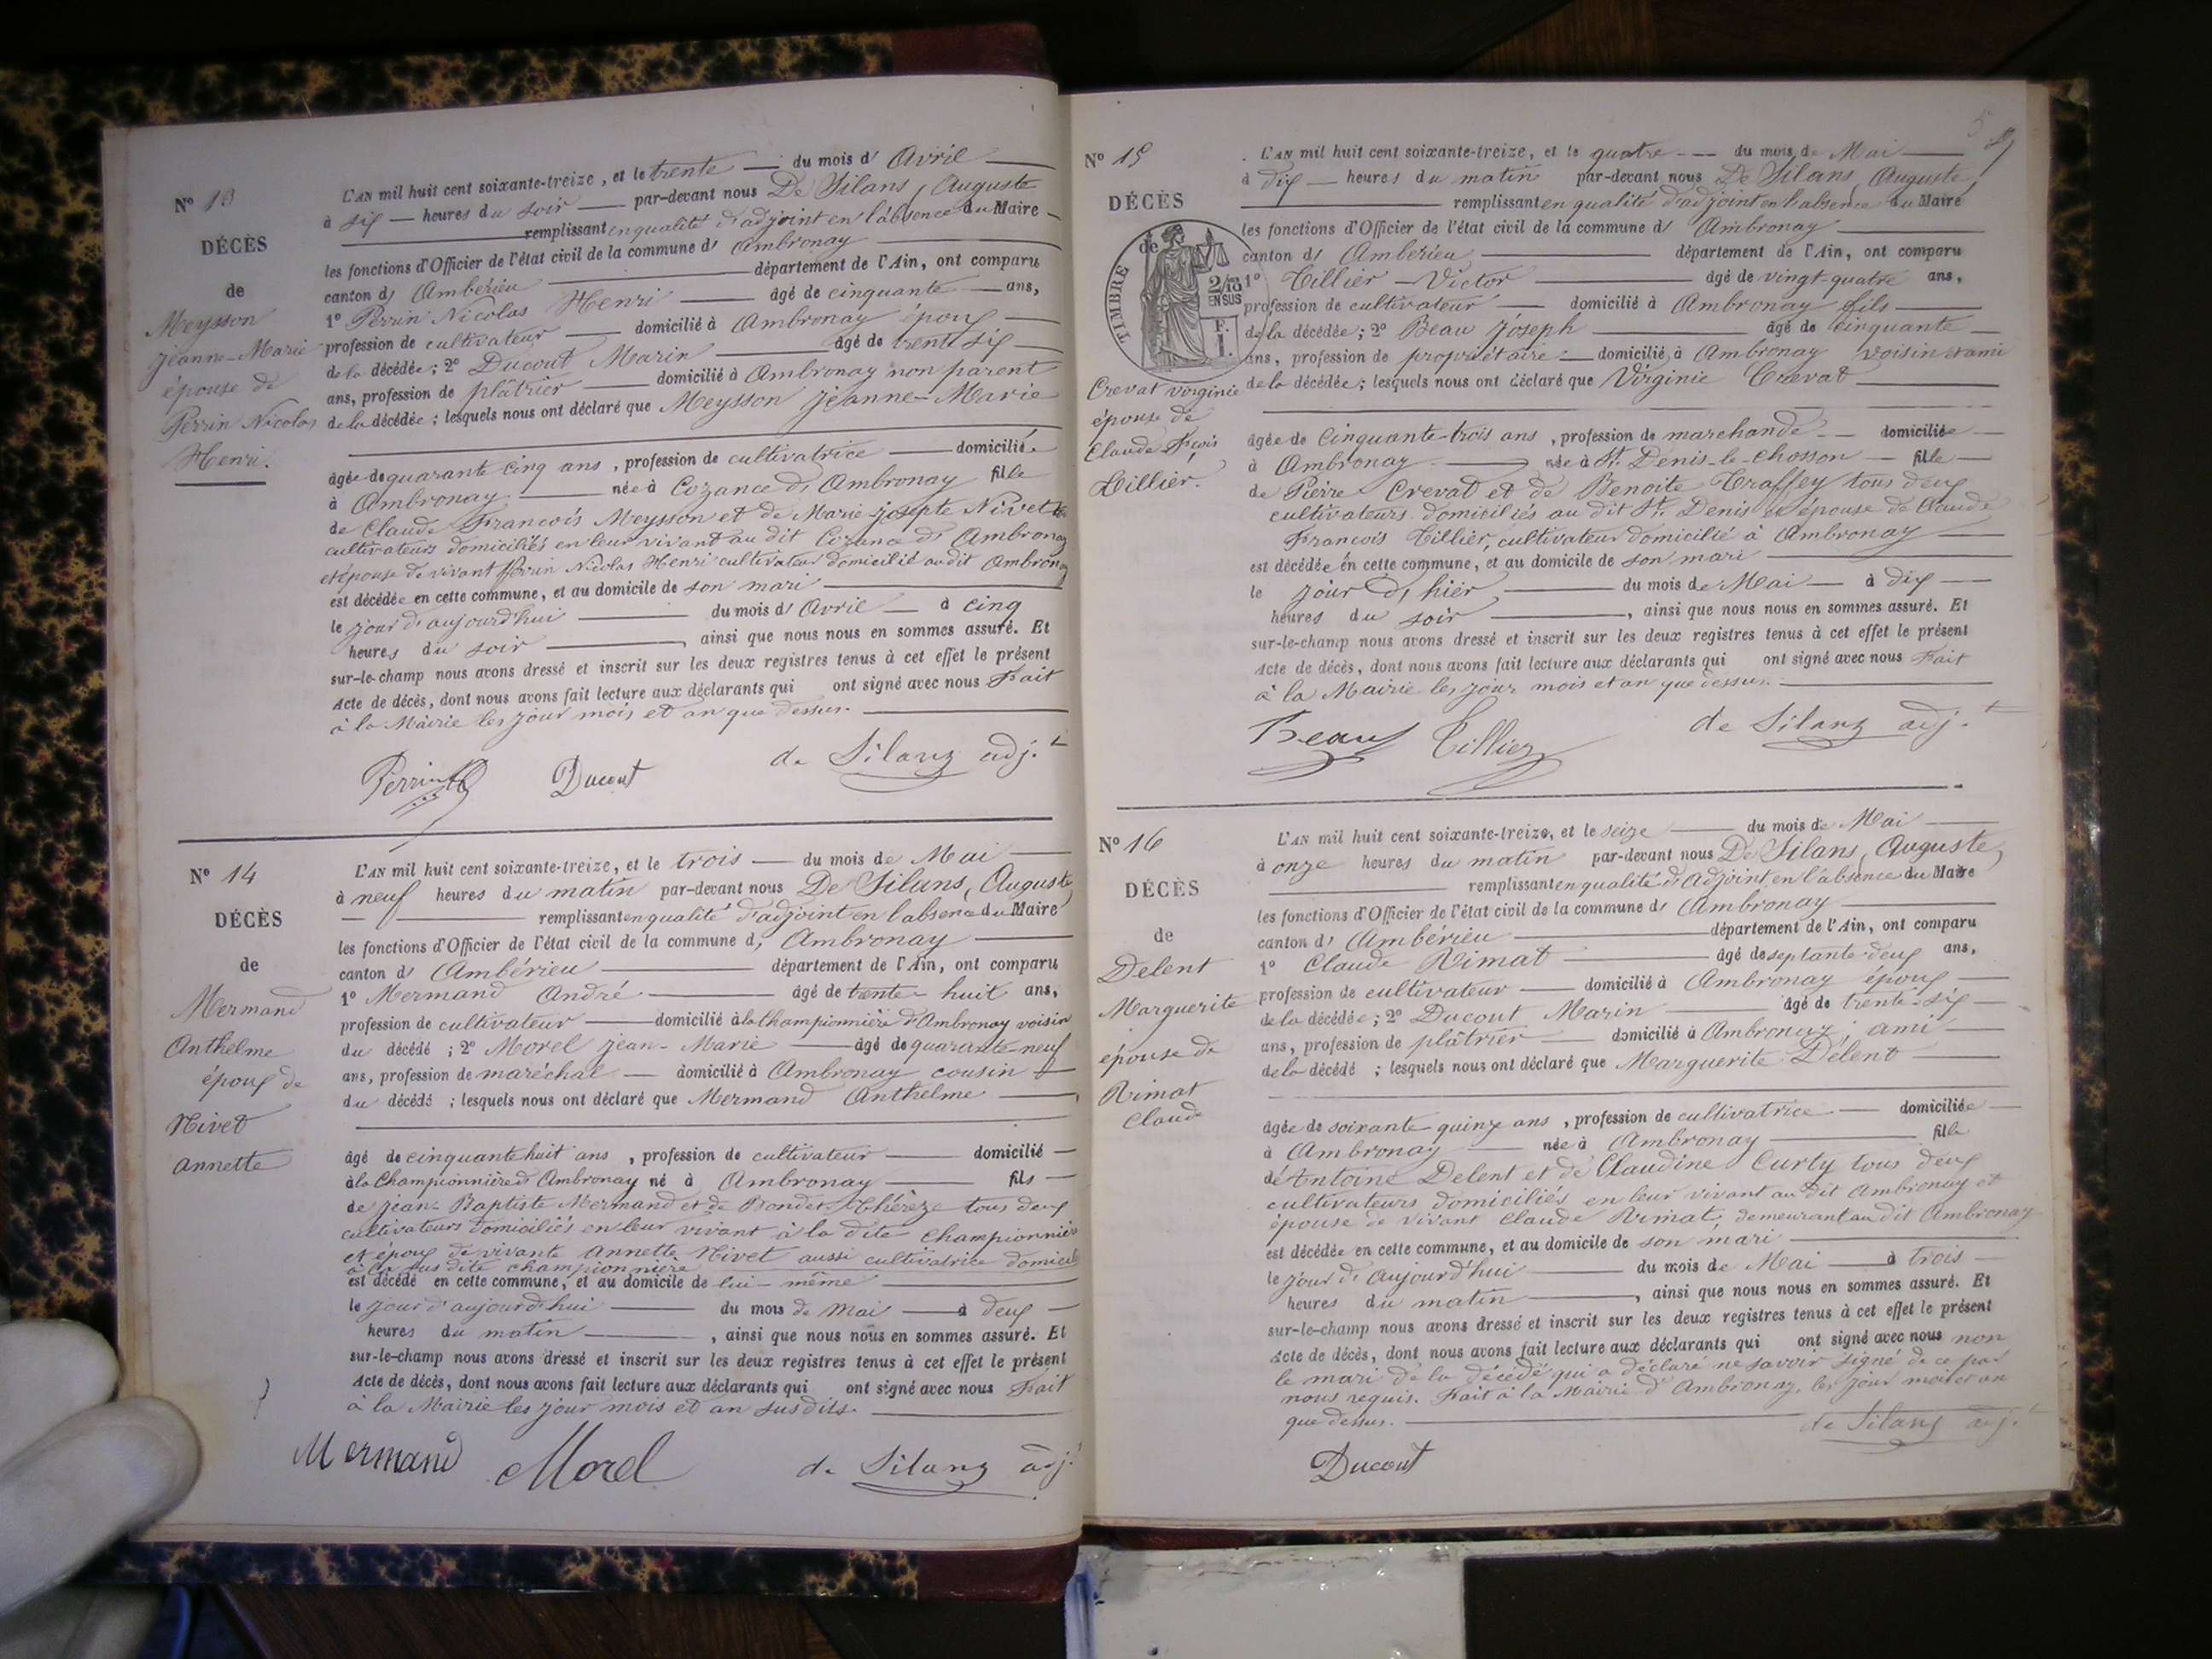 Nº 13
DÉCÈS
de
Meysson
Jeanne-Marie
épouse de
Perrin Nicolas
Henri.
L'AN mil huit cent soixante-treize, et le trente du mois d' Avril
à six heures du soir par-devant nous De Silans, Auguste
remplissant en qualité d'adjoint en l'absence du Maire
les fonctions d'Officier de l'état civil de la commune d' Ambronay
canton d' Ambérieu département de l'Ain, ont comparu
1º Perrin Nicolas Henri âgé de cinquante ans,
profession de cultivateur domicilié à Ambronay époux
de la décédée ; 2º Ducout Marin âgé de trente six
ans, profession de plâtrier domicilié à Ambronay non parent
de la décédée ; lesquels nous ont déclaré que Meysson Jeanne-Marie
âgée de quarante cinq ans, profession de cultivatrice domiciliée
à Ambronay née à Cozance d' Ambronay fille
de Claude François Meysson et de Marie-Josepte Nivet
cultivateurs domiciliés en leur vivant au dit Cozance d' Ambronay
et épouse de vivant Perrin Nicolas Henri cultivateur domicilié au dit Ambronay
est décédée en cette commune, et au domicile de son mari
le jour d'aujourd'hui du mois d' Avril à cinq
heures du soir, ainsi que nous nous en sommes assuré. Et
sur-le-champ nous avons dressé et inscrit sur les deux registres tenus à cet effet le présent
Acte de décès, dont nous avons fait lecture aux déclarants qui ont signé avec nous Fait
à la Mairie les jour mois et an que dessus.
Perrin Ducout de Silanz adj.t
Nº 14
DÉCÈS
de
Mermand
Anthelme
époux de
Nivet
Annette
L'AN mil huit cent soixante-treize, et le trois du mois de Mai
à neuf heures du matin par-devant nous De Silans, Auguste
remplissant en qualité d'adjoint en l'absence du Maire
les fonctions d'Officier de l'état civil de la commune d' Ambronay
canton d' Ambérieu département de l'Ain, ont comparu
1º Mermand André âgé de trente-huit ans,
profession de cultivateur domicilié à la Championnière d'Ambronay voisin
du décédé ; 2º Morel Jean-Marie âgé de quarante-neuf
ans, profession de maréchal domicilié à Ambronay cousin
du décédé ; lesquels nous ont déclaré que Mermand Anthelme
âgé de cinquante huit ans, profession de cultivateur domicilié
à la Championnière d' Ambronay né à Ambronay fils
de Jean-Baptiste Mermand et de Bondet Thérèze tous deux
cultivateurs domiciliés en leur vivant à la dite Championnière
et époux de vivante Annette Nivet aussi cultivatrice domicile
à la sus dite championnière
est décédé en cette commune, et au domicile de lui-même
le jour d'aujourd'hui du mois de Mai à deux
heures du matin, ainsi que nous nous en sommes assuré. Et
sur-le-champ nous avons dressé et inscrit sur les deux registres tenus à cet effet le présent
Acte de décès, dont nous avons fait lecture aux déclarants qui ont signé avec nous Fait
à la Mairie les jour mois et an susdits.
Mermand Morel de Silanz adj.t
5
Nº 15
DÉCÈS
de
TIMBRE
2/10
EN SUS
F.
1.
Crevat Virginie
épouse de
Claude Fçois
Tillier.
L'AN mil huit cent soixante-treize, et le quatre du mois de Mai
à dix heures du matin par-devant nous De Silans, Auguste,
remplissant en qualité d'adjoint en l'absence du Maire
les fonctions d'Officier de l'état civil de la commune d' Ambronay
canton d' Ambérieu département de l'Ain, ont comparu
1º Tillier Victor âgé de vingt-quatre ans,
profession de cultivateur domicilié à Ambronay fils
de la décédée ; 2º Beau Joseph âgé de cinquante
ans, profession de propriétaire domicilié à Ambronay voisin et ami
de la décédée ; lesquels nous ont déclaré que Virginie Crevat
âgée de Cinquante-trois ans, profession de marchande domiciliée
à Ambronay née à St. Denis-le-Chosson fille
de Pierre Crevat et de Benoîte Traffey tous deux
cultivateurs domiciliés au dit St. Denis et épouse de Claude
François Tillier, cultivateur domicilié à Ambronay
est décédée en cette commune, et au domicile de son mari
le jour d' hier du mois de Mai à dix
heures du soir, ainsi que nous nous en sommes assuré. Et
sur-le-champ nous avons dressé et inscrit sur les deux registres tenus à cet effet le présent
Acte de décès, dont nous avons fait lecture aux déclarants qui ont signé avec nous Fait
à la Mairie les jour mois et an que dessus.
Beau Tillier de Silanz adj.t
Nº 16
DÉCÈS
de
Delent
Marguerite
épouse de
Rimat
Claude
L'AN mil huit cent soixante-treize, et le seize du mois de Mai
à onze heures du matin par-devant nous De Silans, Auguste,
remplissant en qualité d' Adjoint, en l'absence du Maire
les fonctions d'Officier de l'état civil de la commune d' Ambronay
canton d' Ambérieu département de l'Ain, ont comparu
1º Claude Rimat âgé de septante-deux ans,
profession de cultivateur domicilié à Ambronay époux
de la décédée ; 2º Ducout Marin âgé de trente-six
ans, profession de plâtrier domicilié à Ambronay ; ami
de la décédé ; lesquels nous ont déclaré que Marguerite Délent
âgée de soixante-quinze ans, profession de cultivatrice domiciliée
à Ambronay née à Ambronay fille
d'Antoine Delent et de Claudine Curty tous deux
cultivateurs domiciliés en leur vivant au dit Ambronay et
épouse de vivant Claude Rimat, demeurant au dit Ambronay
est décédée en cette commune, et au domicile de son mari
le jour d' aujourd'hui du mois de Mai à trois
heures du matin, ainsi que nous nous en sommes assuré. Et
sur-le-champ nous avons dressé et inscrit sur les deux registres tenus à cet effet le présent
Acte de décès, dont nous avons fait lecture aux déclarants qui ont signé avec nous non
le mari de la décédé qui a déclaré ne savoir signé de ce par
nous requis. Fait à la Mairie d' Ambronay, les jour mois et an
que dessus. de Silanz adj.t
Ducout